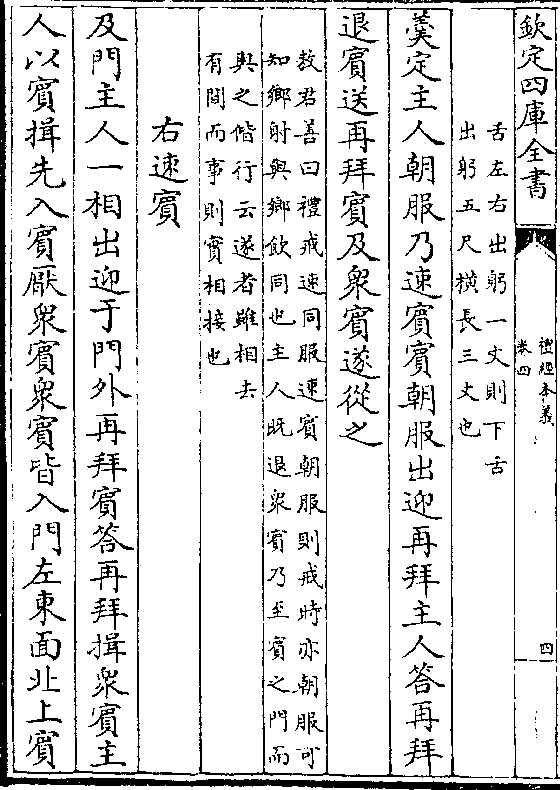 欽定四庫全書
禮經本義
卷四
四
舌左右出躬一丈則下舌
出躬五尺橫長三丈也
羹定主人朝服乃速賓賓朝服出迎再拜主人答再拜
退賓送再拜賓及衆賓遂從之
敖君善曰禮戒速同服速賓朝服則戒時亦朝服可
知鄉射與鄉飲同也主人既退衆賓乃至賓之門而
與之偕行云遂者雖相去
有間而事則實相接也
右速賓
及門主人一相出迎于門外再拜賓答再拜揖衆賓主
人以賓揖先入賓厭衆賓衆賓皆入門左東面北上賓